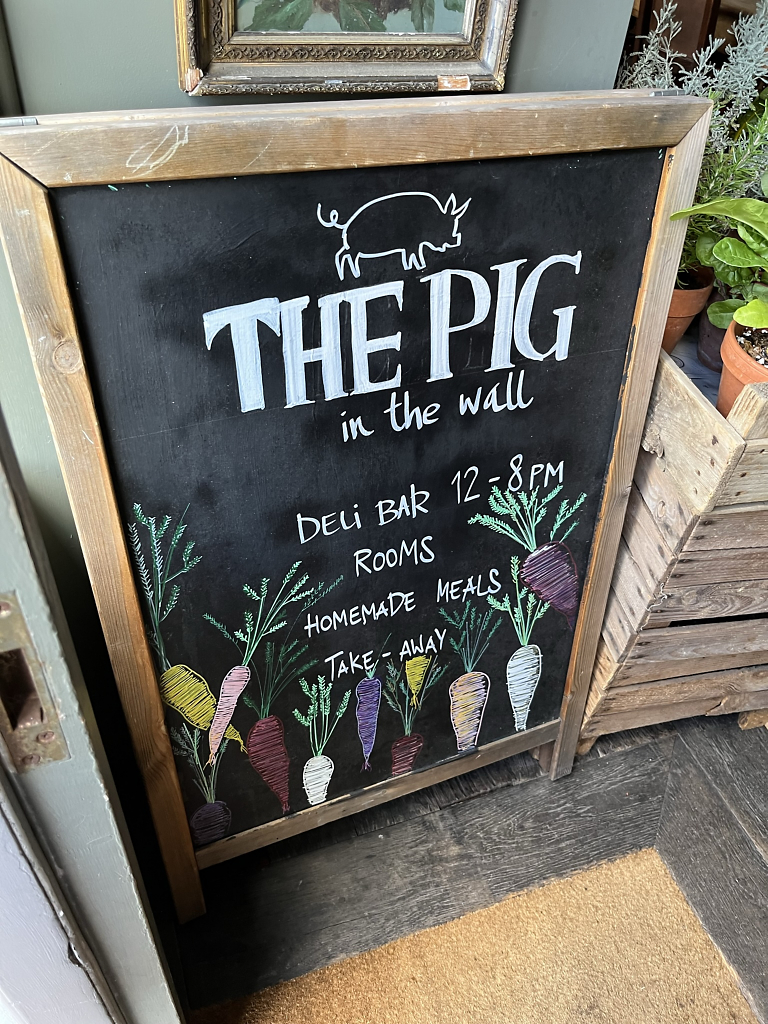 THE PIG
in the wall
DELi BAR 12-8PM
ROOMS
HOMEMADE MEALS
TAKE-AWAY